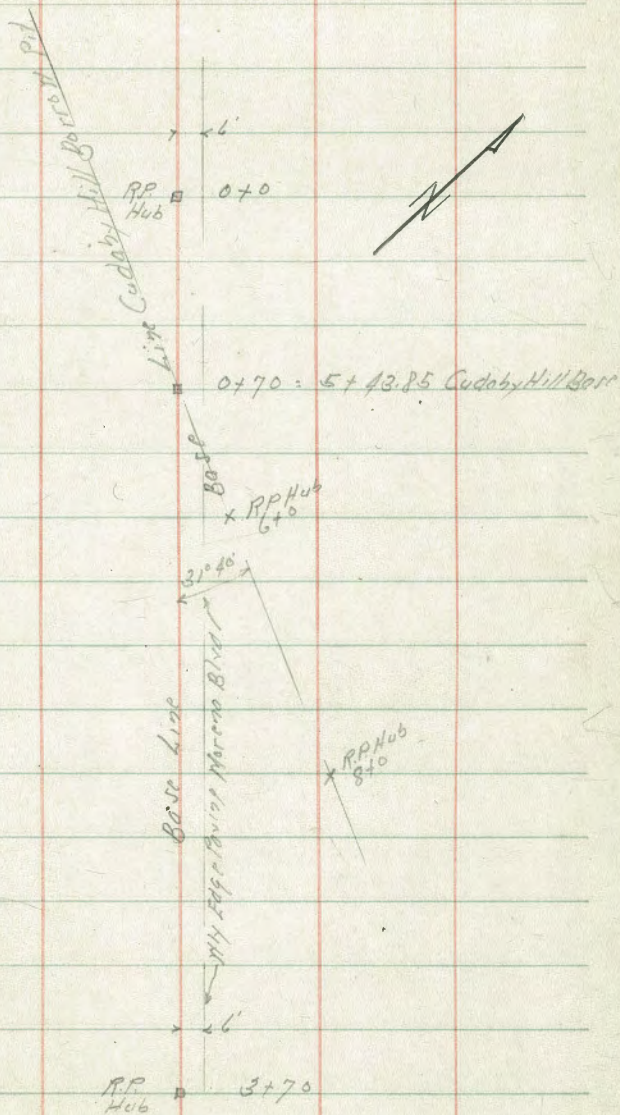 Line Cudahy Hill Borrow Pit
6'
R.P.
Hub
0+0
N
0+70 = 5+43.85 Cudahy Hill Base
Base
R.P. Hub
6+0
31°40'
Base Line
Edge Paving Morena Blvd
R.P. Hub
8+0
6'
R.P.
Hub
3+70